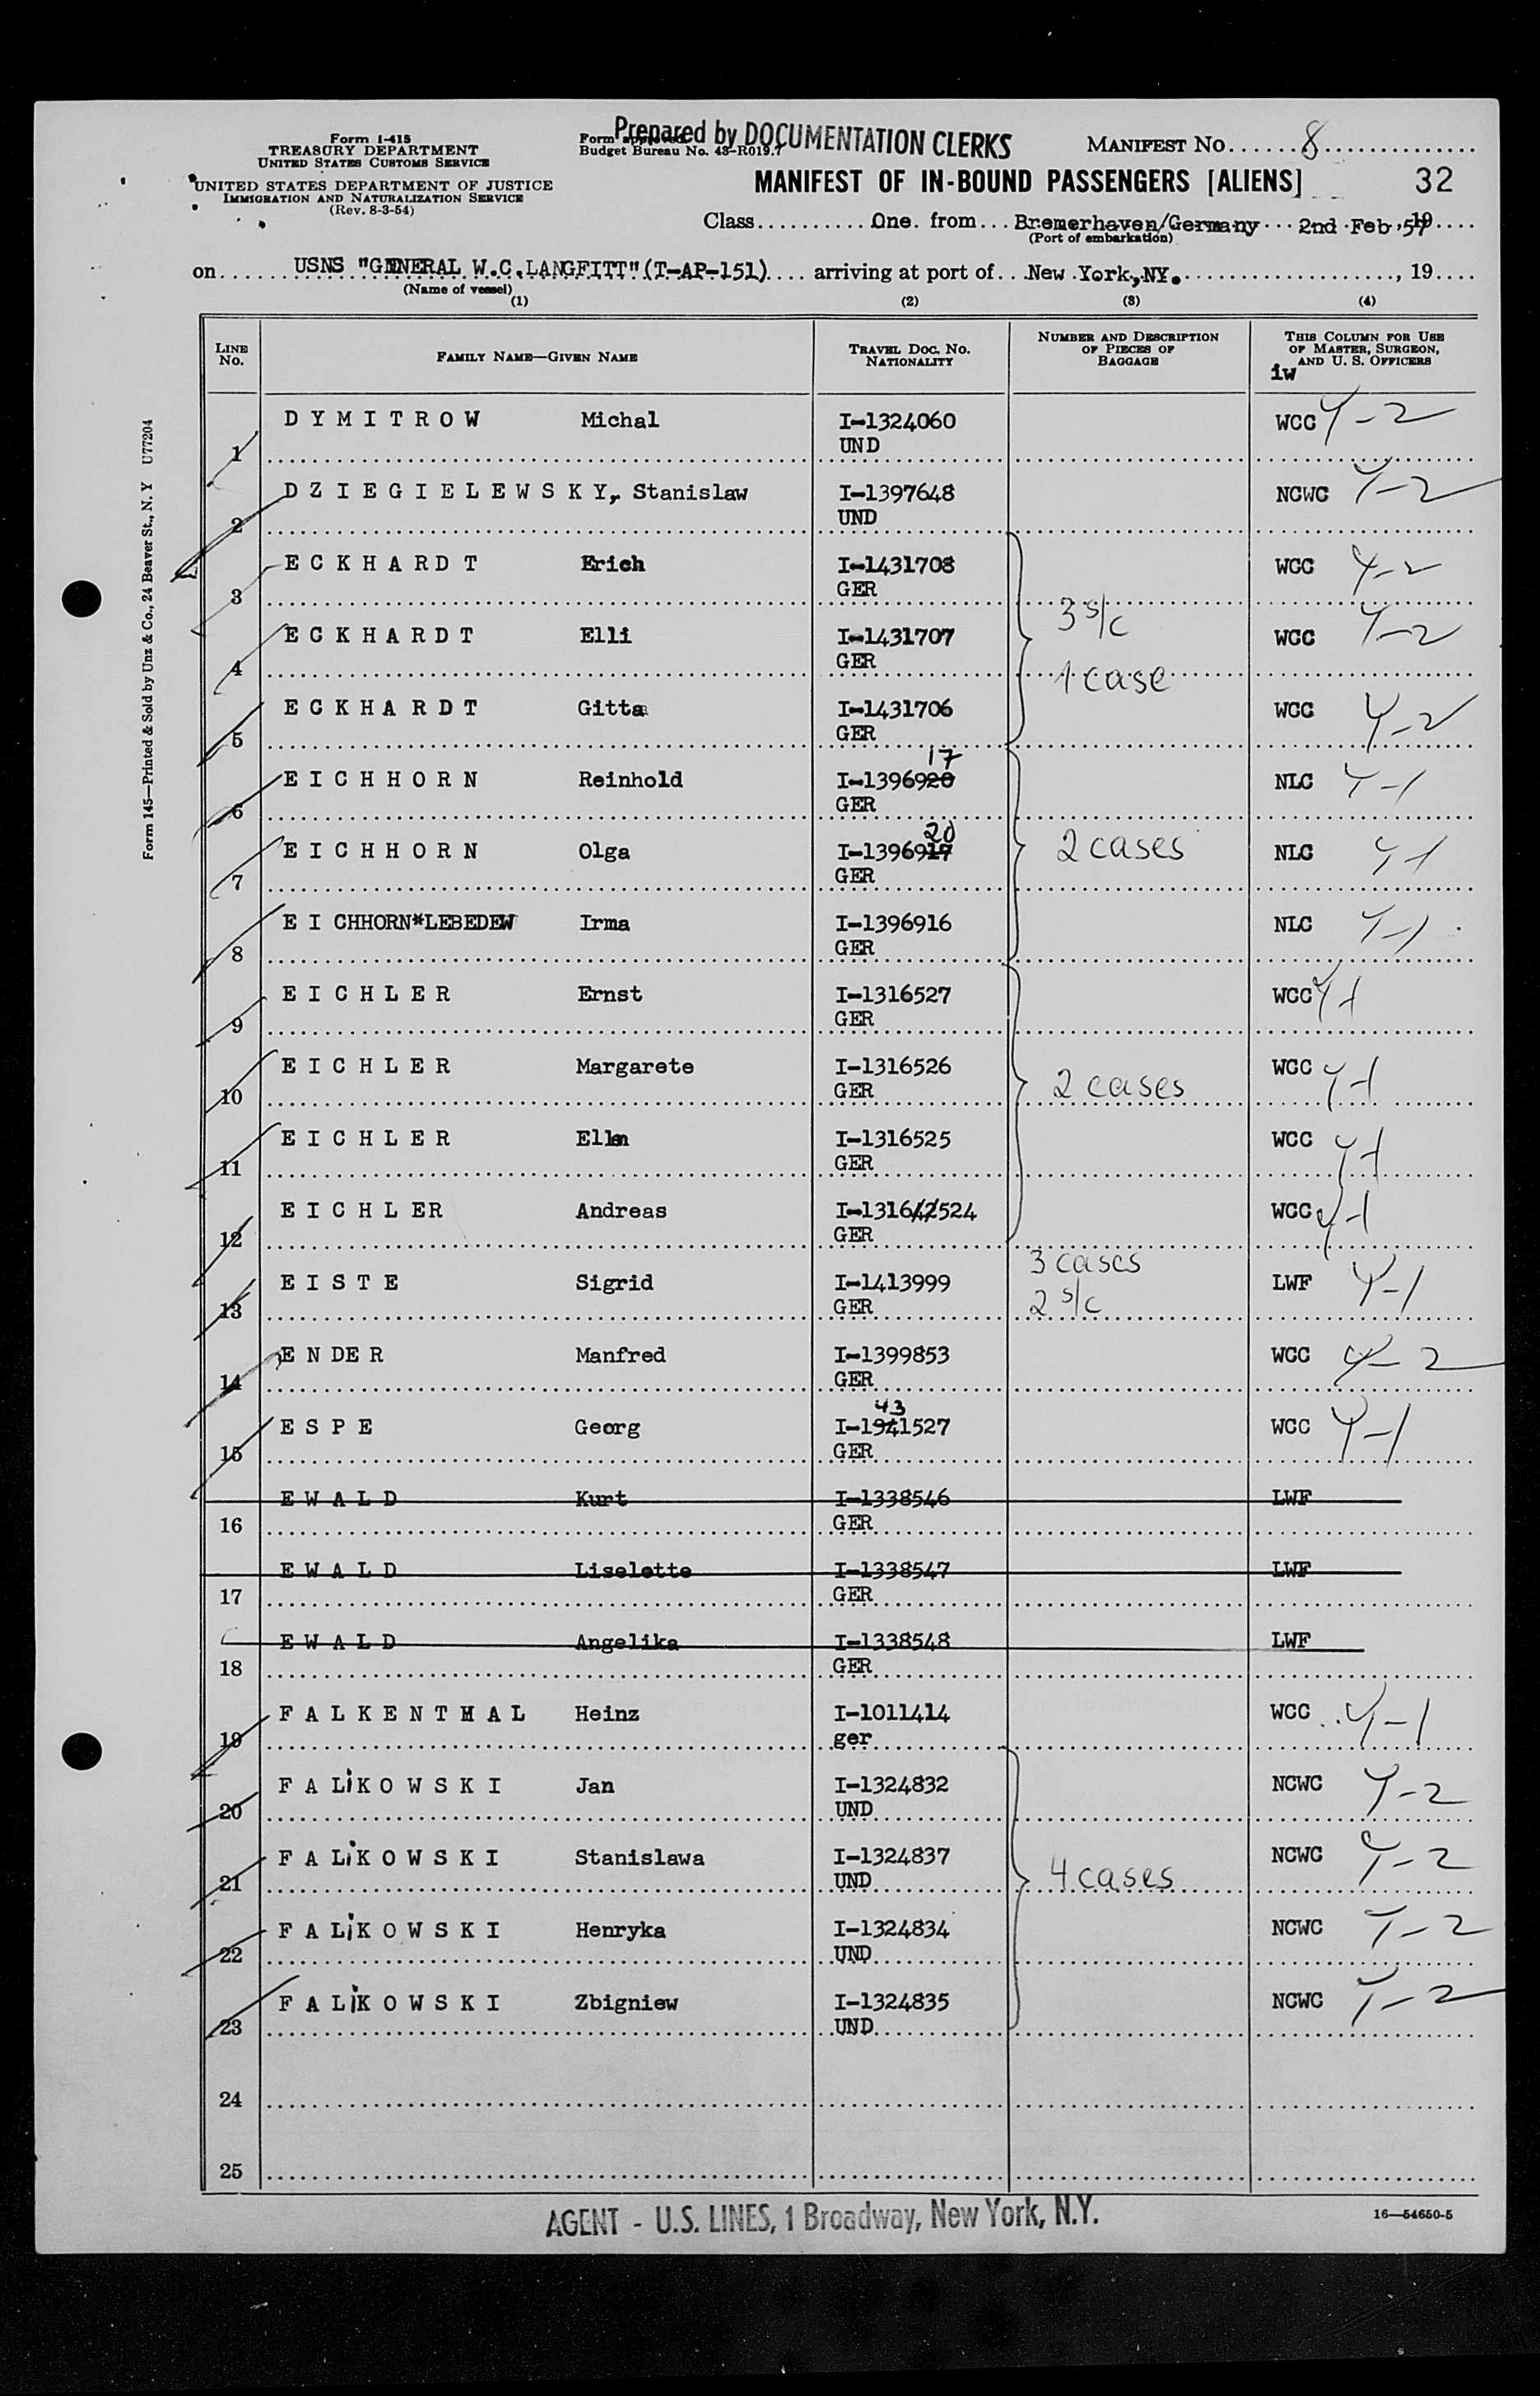 Form I-415
TREASURY DEPARTMENT
UNITED STATES CUSTOMS SERVICE
UNITED STATES DEPARTMENT OF JUSTICE
IMMIGRATION AND NATURALIZATION SERVICE
(Rev. 8-3-54)
Form approved.
Budget Bureau No. 43-R019.7
Prepared by DOCUMENTATION CLERKS
MANIFEST NO. 8
MANIFEST OF IN-BOUND PASSENGERS [ALIENS] 32
Class One. from Bremerhaven/Germany 2nd Feb, 19
(Port of embarkation)
on USNS "GENERAL W.C.LANGFITT" (T-AP-151) arriving at port of New York, NY. , 19
(Name of vessel)
(1) (2) (3) (4)
LINE NO. FAMILY NAME—GIVEN NAME TRAVEL DOC. NO. NATIONALITY NUMBER AND DESCRIPTION OF PIECES OF BAGGAGE THIS COLUMN FOR USE OF MASTER, SURGEON, AND U. S. OFFICERS
iw
1 DYMITROW Michal I-1324060 WCC Y-2
UND
2 DZIEGIELEWSKY, Stanislaw I-1397648 NCWC Y-2
UND
3 ECKHARDT Erich I-1431708 WCC Y-2
GER
3 s/c
4 ECKHARDT Elli I-1431707 WCC Y-2
GER
1 case
5 ECKHARDT Gitta I-1431706 WCC Y-2
GER
17
6 EICHHORN Reinhold I-1396920 NLC Y-1
GER
20
7 EICHHORN Olga I-1396917 2 cases NLC Y-1
GER
8 EICHHORN*LEBEDEW Irma I-1396916 NLC Y-1
GER
9 EICHLER Ernst I-1316527 WCC Y-1
GER
10 EICHLER Margarete I-1316526 2 cases WCC Y-1
GER
11 EICHLER I-1316525 WCC Y-1
GER
12 EICHLER Andreas I-131642524 WCC Y-1
GER
3 cases
13 EISTE Sigrid I-1413999 2 s/c LWF Y-1
GER
14 ENDER Manfred I-1399853 WCC Y-2
GER
43
15 ESPE Georg I-1941527 WCC Y-1
GER
16 EWALD Kurt I-1338546 LWF
GER
17 EWALD Liselotte I-1338547 LWF
GER
18 EWALD Angelika I-1338548 LWF
GER
19 FALKENTHAL Heinz I-1011414 WCC Y-1
ger
20 FALiKOWSKI Jan I-1324832 NCWC Y-2
UND
21 FALiKOWSKI Stanislawa I-1324837 4 cases NCWC Y-2
UND
22 FALiKOWSKI Henryka I-1324834 NCWC Y-2
UND
23 FALiKOWSKI Zbigniew I-1324835 NCWC Y-2
UND
24
25
AGENT - U.S. LINES, 1 Broadway, New York, N.Y.
16—54650-5
Form 145—Printed & Sold by Unz & Co., 24 Beaver St., N. Y U77204